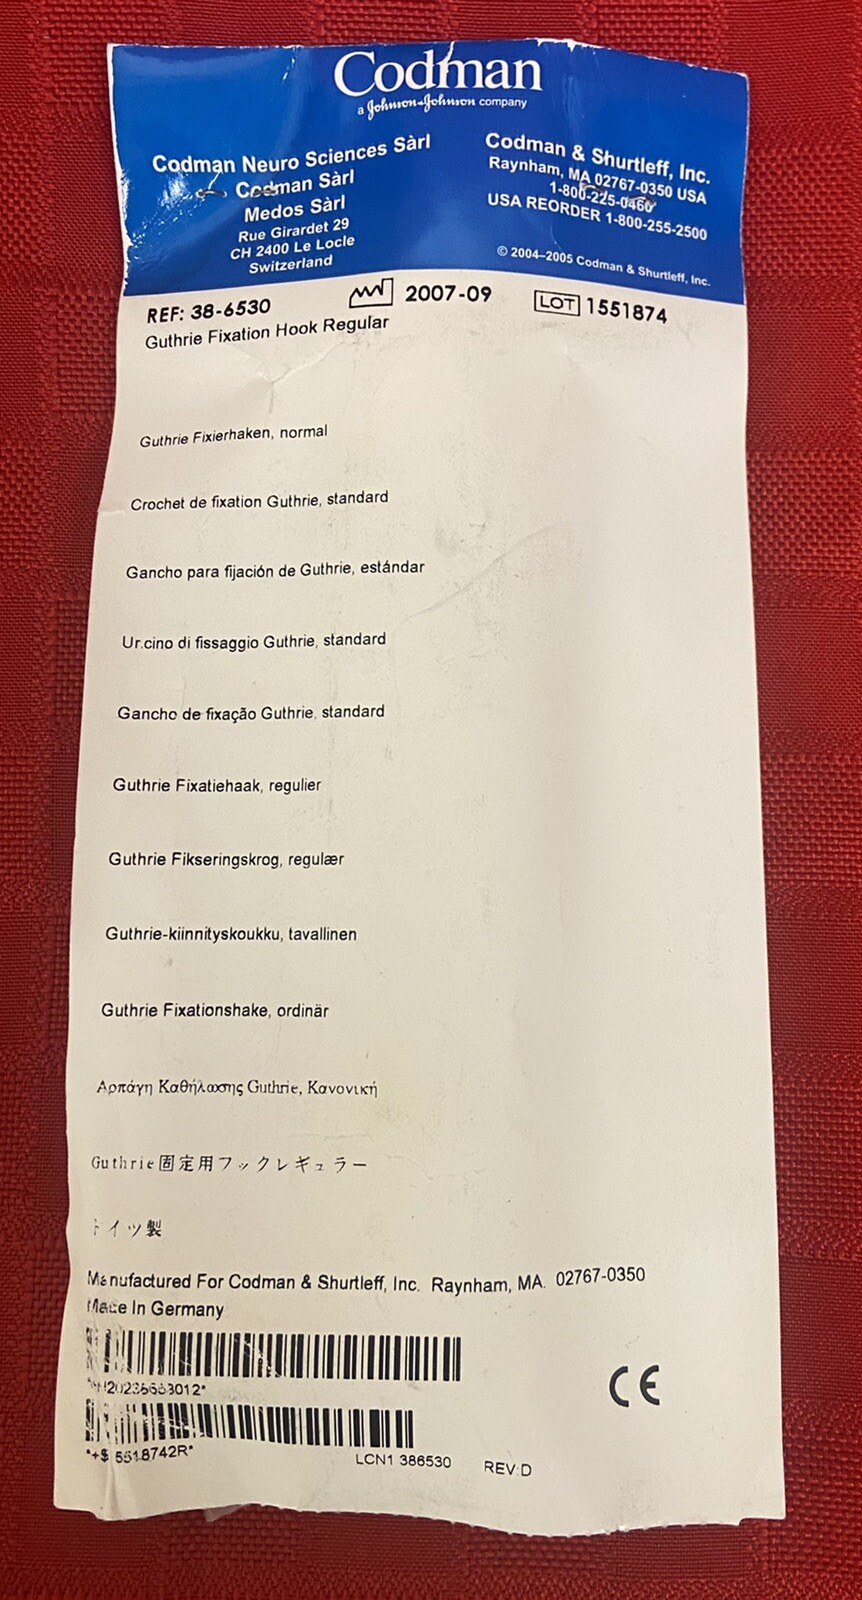 Codman
a Johnson & Johnson company
Codman Neuro Sciences Sàrl
Codman Sàrl
Medos Sàrl
Rue Girardet 29
CH 2400 Le Locle
Switzerland
Codman & Shurtleff, Inc.
Raynham, MA 02767-0350 USA
1-800-225-0460
USA REORDER 1-800-255-2500
© 2004–2005 Codman & Shurtleff, Inc.
REF: 38-6530
2007-09
LOT 1551874
Guthrie Fixation Hook Regular
Guthrie Fixierhaken, normal
Crochet de fixation Guthrie, standard
Gancho para fijación de Guthrie, estándar
Ur.cino di fissaggio Guthrie, standard
Gancho de fixação Guthrie, standard
Guthrie Fixatiehaak, regulier
Guthrie Fikseringskrog, regulær
Guthrie-kiinnityskoukku, tavallinen
Guthrie Fixationshake, ordinär
Αρπάγη Καθήλωσης Guthrie, Κανονική
Guthrie固定用フックレギュラー
ドイツ製
Manufactured For Codman & Shurtleff, Inc. Raynham, MA. 02767-0350
Made In Germany
CE
LCN1 386530
REV:D